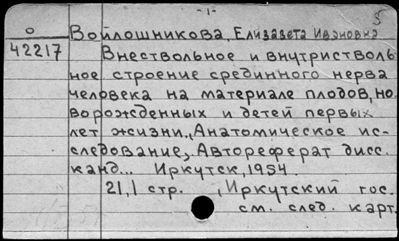 -1-
5
о Войлошникова, Елизавета Ивановна
42217 Внествольное и внутристволь-
ное строение срединного нерва
человека на материале плодов, но
ворожденных и детей первых
лет жизни. „Анатомическое ис-
следование„. Автореферат дисс.
канд... Иркутск, 1954.
21,1 стр. , Иркутский гос.
см. след. карт.